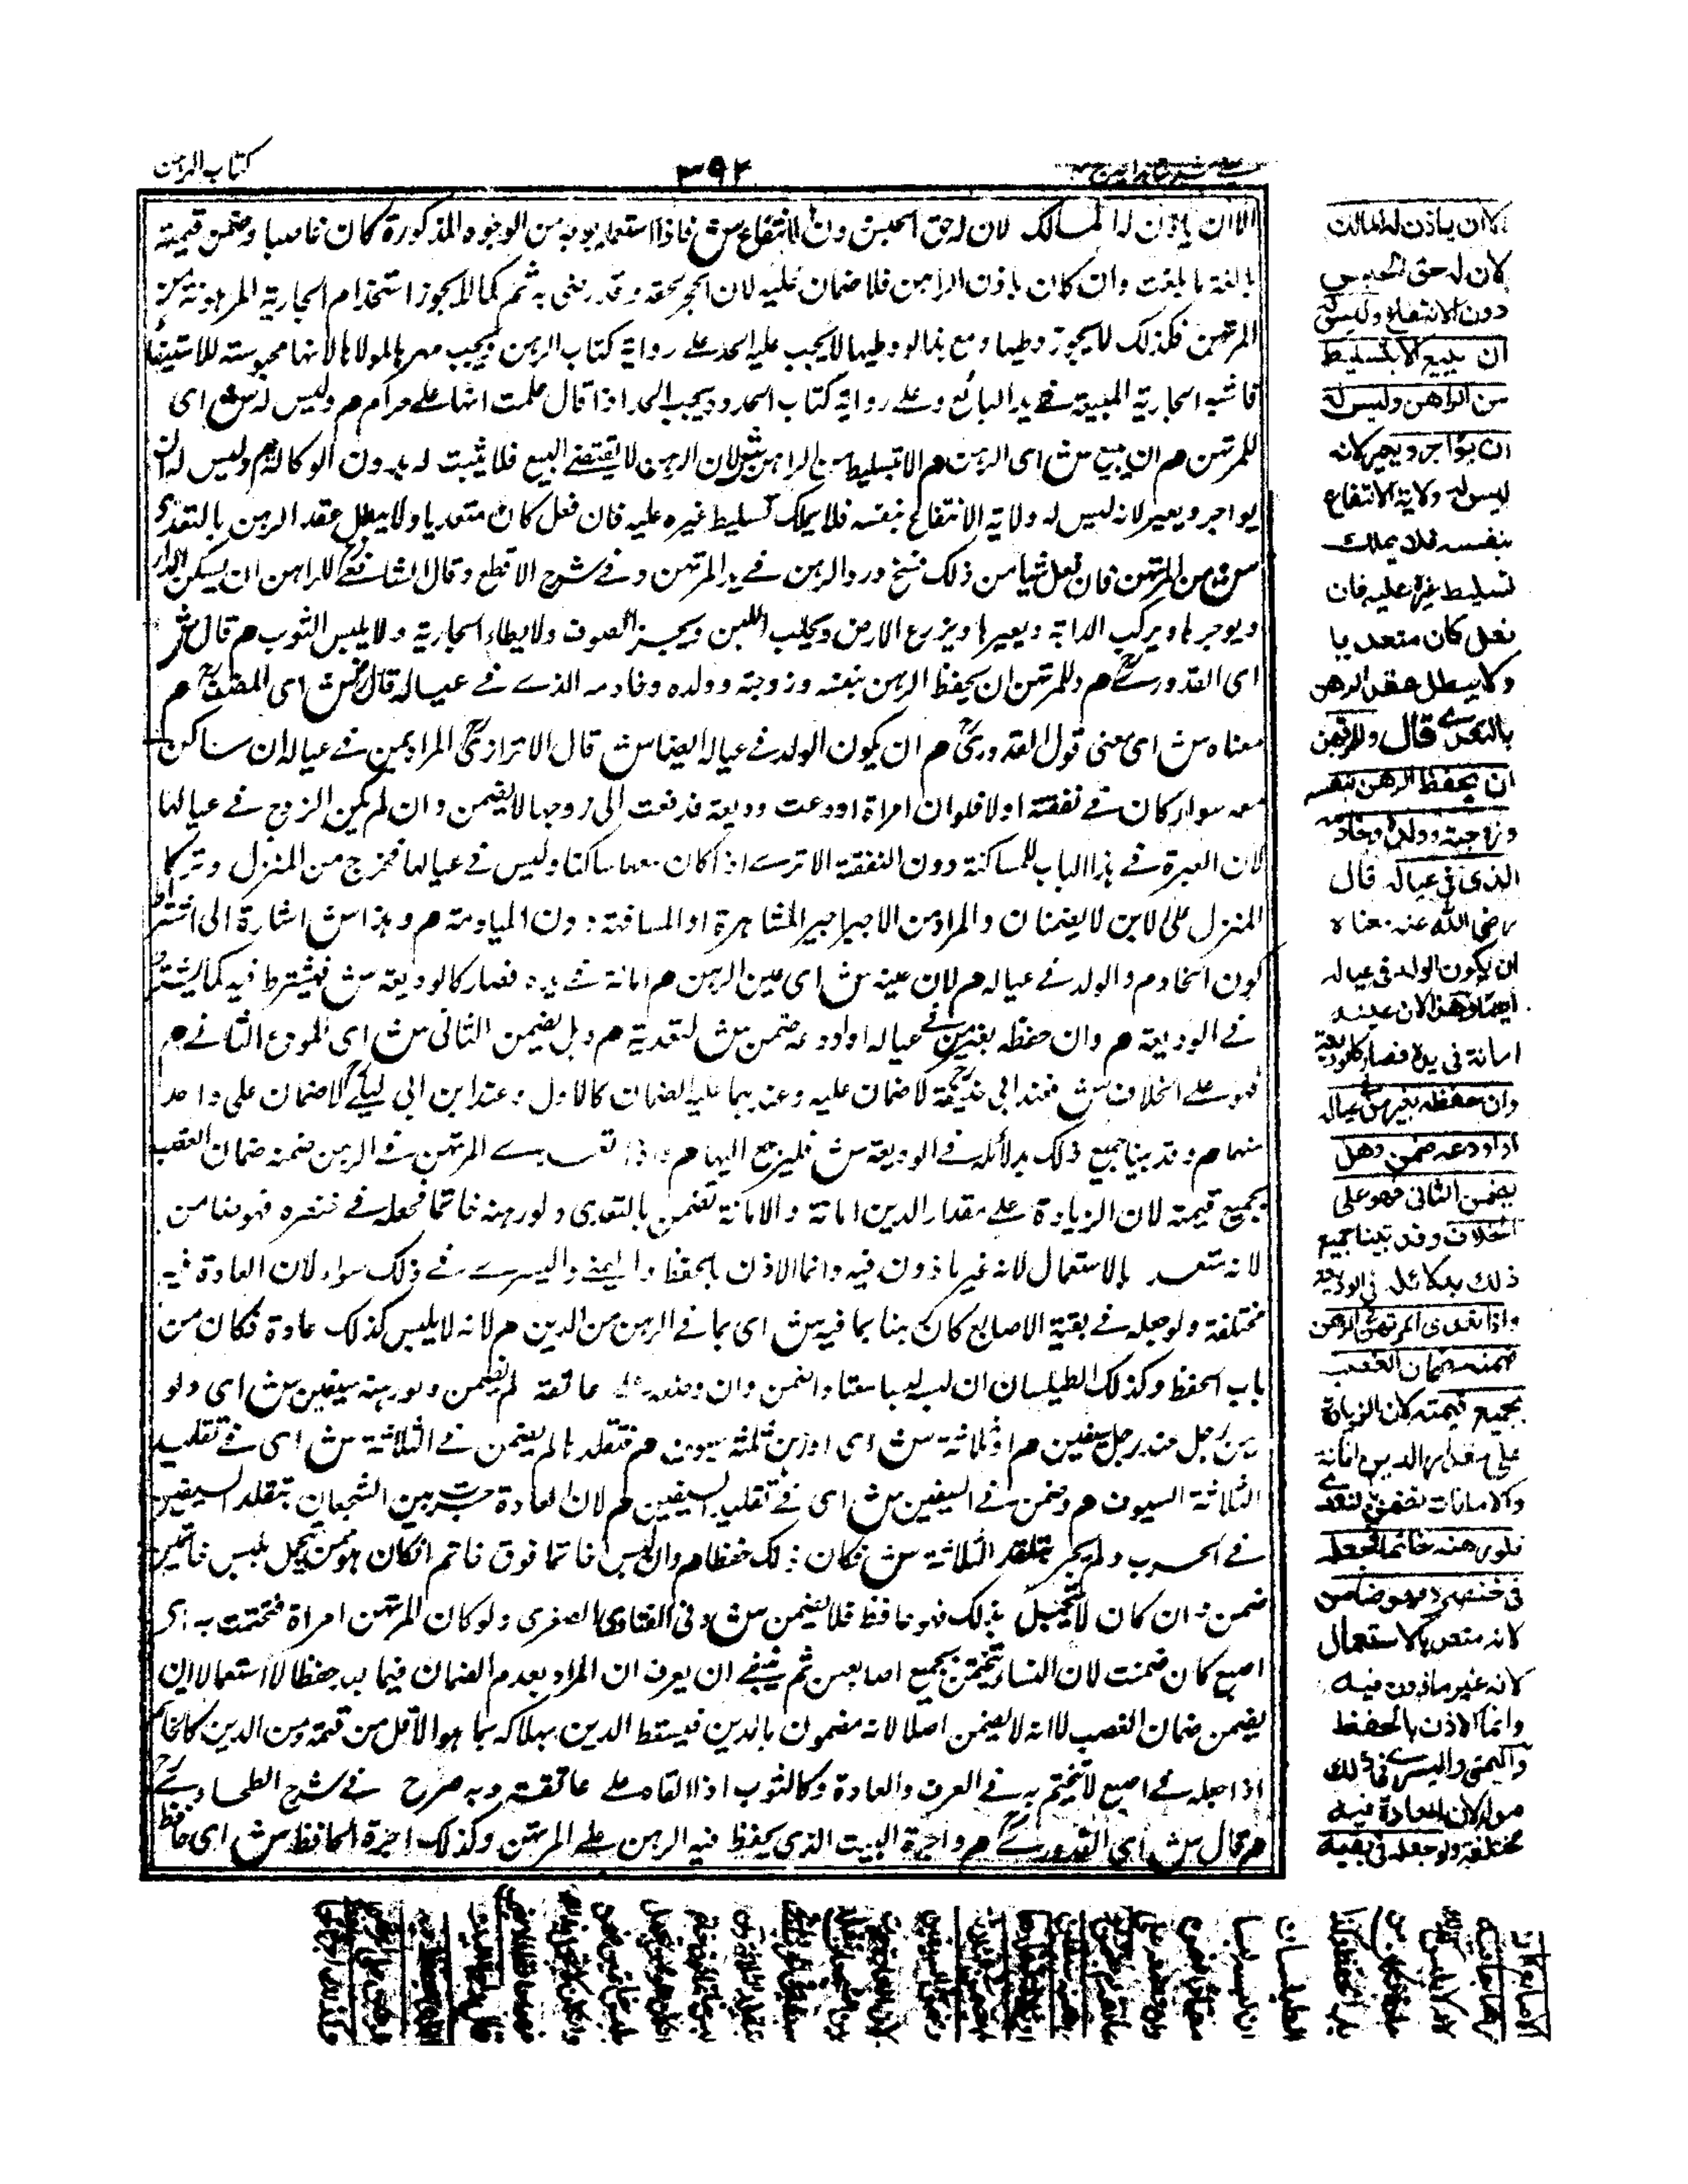 كتاب الرهن
٣٩٢
الا ان ياذن له المالك لان له حق الحبس دون الانتفاع ش فاذا استعمله بوجه من الوجوه المذكورة كان غاصبا وضمن قيمته
بالغة ما بلغت وان كان باذن الراهن فلا ضمان عليه لان الحجر لحقه وقد رضى به ثم كما لا يجوز استخدام الجارية المرهونة من
المرتهن فكذلك لا يجوز وطيها ومع هذا لو وطيها لا يجب عليه الحد على رواية كتاب الرهن ويجب مهرها لمولاها لانها محبوسة للاستيفاء
فاشبه الجارية المبيعة فے يد البائع وعلے رواية كتاب الحدود يجب الحد اذا قال علمت انها علے حرام م وليس له ش اى
للمرتهن م ان يبيع ش اى الرهن م الا بتسليط من الراهن ش لان الرهن لا يقتضے البيع فلا يثبت له بدون الوكالة م وليس له ان
يواجر ويعير لانه ليس له ولاية الانتفاع بنفسه فلا يملك تسليط غيره عليه فان فعل كان متعديا ولا يبطل عقد الرهن بالتعدى
ش من المرتهن فان فعل شيا من ذلك فسخ ورد الرهن فے يد المرتهن وفے شرح الاقطع وقال الشافعے للراهن ان يسكن الدار
ويوجرها ويركب الدابة ويعيرها ويزرع الارض ويحلب اللبن ويجز الصوف ولا يطاء الجارية ولا يلبس الثوب م قال ش
اى القدورے م وللمرتهن ان يحفظ الرهن بنفسه وزوجته وولده وخادمه الذے فے عياله قال ش اى المصنف م
معناه ش اى معنى قول القدورى م ان يكون الولد فے عياله ايضا ش قال الاترازى المراد بمن فے عياله ان ساكن
معه سواء كان فے نفقته اولا فلو ان امراة اودعت وديعة فدفعت الى زوجها لا يضمن وان لم يكن الزوج فے عيالها
لان العبرة فے هذا الباب للمساكنة دون النفقة الا ترے اذا كان معها ساكنا وليس فے عيالها فخرج من المنزل وترك
المنزل على لابن لا يضمنان والمراد من الاجير اجير المشاهرة او المسافة دون المياومة م وهذا ش اشارة الى اشتراط
كون الخادم والولد فے عياله م لان عينه ش اى عين الرهن م امانة فے يده فصار كالوديعة ش فيشترط فيه كما يشترط
فے الوديعة م وان حفظه بغير من فے عياله او اودعه ضمن ش لتعديه م وهل يضمن الثانى ش اى المودع الثانے م
فهو علے الخلاف ش فعند ابي حنيفة لا ضمان عليه وعندهما عليه الضمان كالاول وعند ابن ابى ليلے لا ضمان على واحد
منهما م وقد بينا جميع ذلك بدلائله فے الوديعة ش فليرجع اليها م واذا تعدے المرتهن فے الرهن ضمنه ضمان الغصب
بجميع قيمته لان الزيادة علے مقدار الدين امانة والامانة تضمن بالتعدى ولو رهنه خاتما فجعله فے خنصره فهو ضامن
لانه متعد بالاستعمال لانه غير ماذون فيه وانما الاذن بالحفظ واليمنے واليسرے فے ذلك سواء لان العادة فيه
مختلفة ولو جعله فے بقية الاصابع كان رهنا بما فيه ش اى بما فے الرهن من الدين م لانه لا يلبس كذلك عادة فكان من
باب الحفظ وكذلك الطيلسان ان لبسه لبسا معتادا ضمن وان وضعه على عاتقه لم يضمن ولو رهنه سيفين ش اى ولو
رهن رجل عند رجل سيفين م او ثلاثة ش اى او رهن ثلثة سيوف م فتقلدها لم يضمن فے الثلاثة ش اى فے تقليد
الثلاثة السيوف م وضمن فے السيفين ش اى فے تقليد السيفين م لان العادة جرت بين الشجعان بتقلد السيفين
فے الحرب ولم يجر بتقلد الثلاثة ش فكان ذلك حفظا م وان لبس خاتما فوق خاتم ان كان هو ممن يتجمل بلبس خاتمين
ضمن وان كان لا يتجمل بذلك فهو حافظ فلا يضمن ش وفى الفتاوى الصغرى ولو كان المرتهن امراة فتختمت به اى
اصبع كان ضمنت لان النساء يتختمن بجميع اصابعهن ثم ينبغے ان يعرف ان المراد بعدم الضمان فيما يعد حفظا لا استعمالا ان
يضمن ضمان الغصب لا انه لا يضمن اصلا لانه مضمون بالدين فيسقط الدين بهلاكه بما هو الاقل من قيمته ومن الدين كالخاتم
اذا جعله فے اصبع لا يتختم به فے العرف والعادة وكالثوب اذا القاه علے عاتقه وبه صرح فے شرح الطحاوے
م قال ش اى القدورے م واجرة البيت الذى يحفظ فيه الرهن علے المرتهن وكذلك اجرة الحافظ ش اى حافظ
الا ان ياذن له المالك
لان له حق الحبس
دون الانتفاع وليس له
ان يبيع الا بتسليط
من الراهن وليس له
ان يواجر ويعير لانه
ليس له ولاية الانتفاع
بنفسه فلا يملك
تسليط غيره عليه فان
فعل كان متعديا
ولا يبطل عقد الرهن
بالتعدے قال وللمرتهن
ان يحفظ الرهن بنفسه
وزوجته وولده وخادمه
الذى فى عياله قال
رضى الله عنه معناه
ان يكون الولد فى عياله
ايضا وهذا لان عينه
امانة فى يده فصار كالوديعة
وان حفظه بغير من فى عياله
او اودعه ضمن وهل
يضمن الثانى فهو على
الخلاف وقد بينا جميع
ذلك بدلائله فى الوديعة
واذا تعدى المرتهن فى الرهن
ضمنه ضمان الغصب
بجميع قيمته لان الزيادة
على مقدار الدين امانة
والامانات تضمن بالتعدے
فلو رهنه خاتما فجعله
فى خنصره فهو ضامن
لانه متعد بالاستعمال
لانه غير ماذون فيه
وانما الاذن بالحفظ
واليمنى واليسرے فى ذلك
سواء لان العادة فيه
مختلفة ولو جعله فى بقية